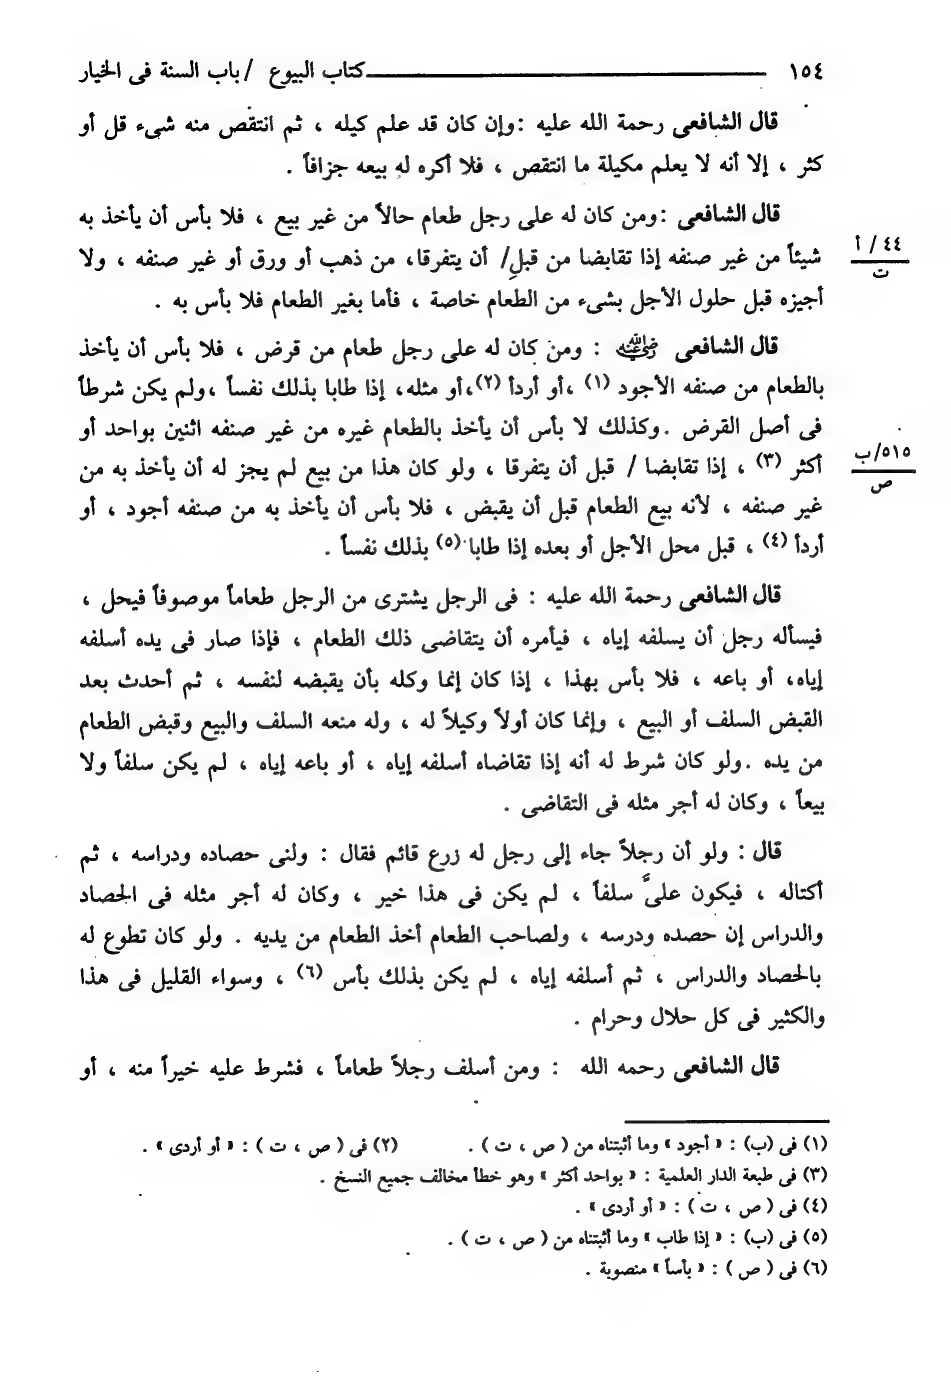 ١٥٤ ــــــــــــــــ كتاب البيوع / باب السنة فى الخيار
قال الشافعى رحمة الله عليه :وإن كان قد علم كيله ، ثم انتقص منه شىء قل أو
كثر ، إلا أنه لا يعلم مكيلة ما انتقص ، فلا أكره له بيعه جزافاً .
قال الشافعى :ومن كان له على رجل طعام حالاً من غير بيع ، فلا بأس أن يأخذ به
شيئاً من غير صنفه إذا تقابضا من قبلِ/ أن يتفرقا، من ذهب أو ورق أو غير صنفه ، ولا
٤٤ / أ
ت
أجيزه قبل حلول الأجل بشىء من الطعام خاصة ، فأما بغير الطعام فلا بأس به .
قال الشافعى رضي الله عنه : ومن كان له على رجل طعام من قرض ، فلا بأس أن يأخذ
بالطعام من صنفه الأجود (١) ،أو أردأ (٢)،أو مثله، إذا طابا بذلك نفساً ،ولم يكن شرطاً
فى أصل القرض .وكذلك لا بأس أن يأخذ بالطعام غيره من غير صنفه اثنين بواحد أو
أكثر (٣) ، إذا تقابضا / قبل أن يتفرقا ، ولو كان هذا من بيع لم يجز له أن يأخذ به من
٥١٥/ب
ص
غير صنفه ، لأنه بيع الطعام قبل أن يقبض ، فلا بأس أن يأخذ به من صنفه أجود ، أو
أردأ (٤) ، قبل محل الأجل أو بعده إذا طابا (٥) بذلك نفساً .
قال الشافعى رحمة الله عليه : فى الرجل يشترى من الرجل طعاماً موصوفاً فيحل ،
فيسأله رجل أن يسلفه إياه ، فيأمره أن يتقاضى ذلك الطعام ، فإذا صار فى يده أسلفه
إياه، أو باعه ، فلا بأس بهذا ، إذا كان إنما وكله بأن يقبضه لنفسه ، ثم أحدث بعد
القبض السلف أو البيع ، وإنما كان أولاً وكيلاً له ، وله منعه السلف والبيع وقبض الطعام
من يده .ولو كان شرط له أنه إذا تقاضاه أسلفه إياه ، أو باعه إياه ، لم يكن سلفاً ولا
بيعاً ، وكان له أجر مثله فى التقاضى .
قال : ولو أن رجلاً جاء إلى رجل له زرع قائم فقال : ولنى حصاده ودراسه ، ثم
أكتاله ، فيكون علىَّ سلفاً ، لم يكن فى هذا خير ، وكان له أجر مثله فى الحصاد
والدراس إن حصده ودرسه ، ولصاحب الطعام أخذ الطعام من يديه . ولو كان تطوع له
بالحصاد والدراس ، ثم أسلفه إياه ، لم يكن بذلك بأس (٦) ، وسواء القليل فى هذا
والكثير فى كل حلال وحرام .
قال الشافعى رحمه الله : ومن أسلف رجلاً طعاماً ، فشرط عليه خيراً منه ، أو
(١) فى (ب) : « أجود » وما أثبتناه من ( ص ، ت ) . (٢) فى ( ص ، ت ) : « أو أردى » .
(٣) فى طبعة الدار العلمية : « بواحد أكثر » وهو خطأ مخالف جميع النسخ .
(٤) فى ( ص ، ت ) : « أو أردى » .
(٥) فى (ب) : « إذا طاب » وما أثبتناه من ( ص ، ت ) .
(٦) فى ( ص ) : « بأساً » منصوبة .